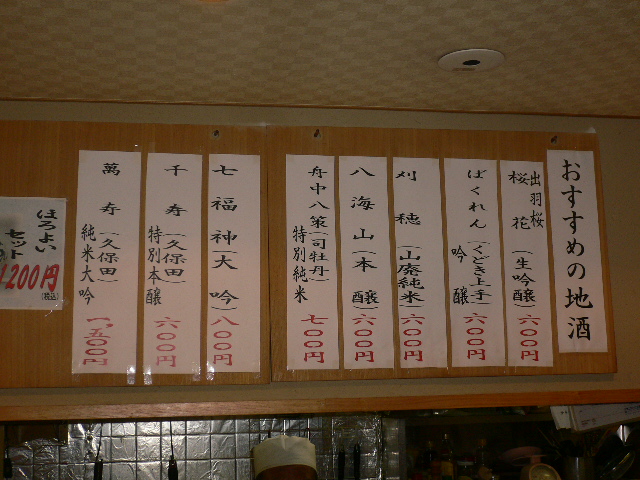 おすすめの地酒
出羽桜
桜花(生吟醸)
六〇〇円
ばくれん(くどき上手)
吟醸
六〇〇円
刈穂(山廃純米)
六〇〇円
八海山(本醸)
六〇〇円
舟中八策(司牡丹)
特別純米
七〇〇円
七福神(大吟)
八〇〇円
千寿(久保田)
特別本醸
六〇〇円
萬寿(久保田)
純米大吟
一、五〇〇円
ほろよい
セット
200円
(税込)